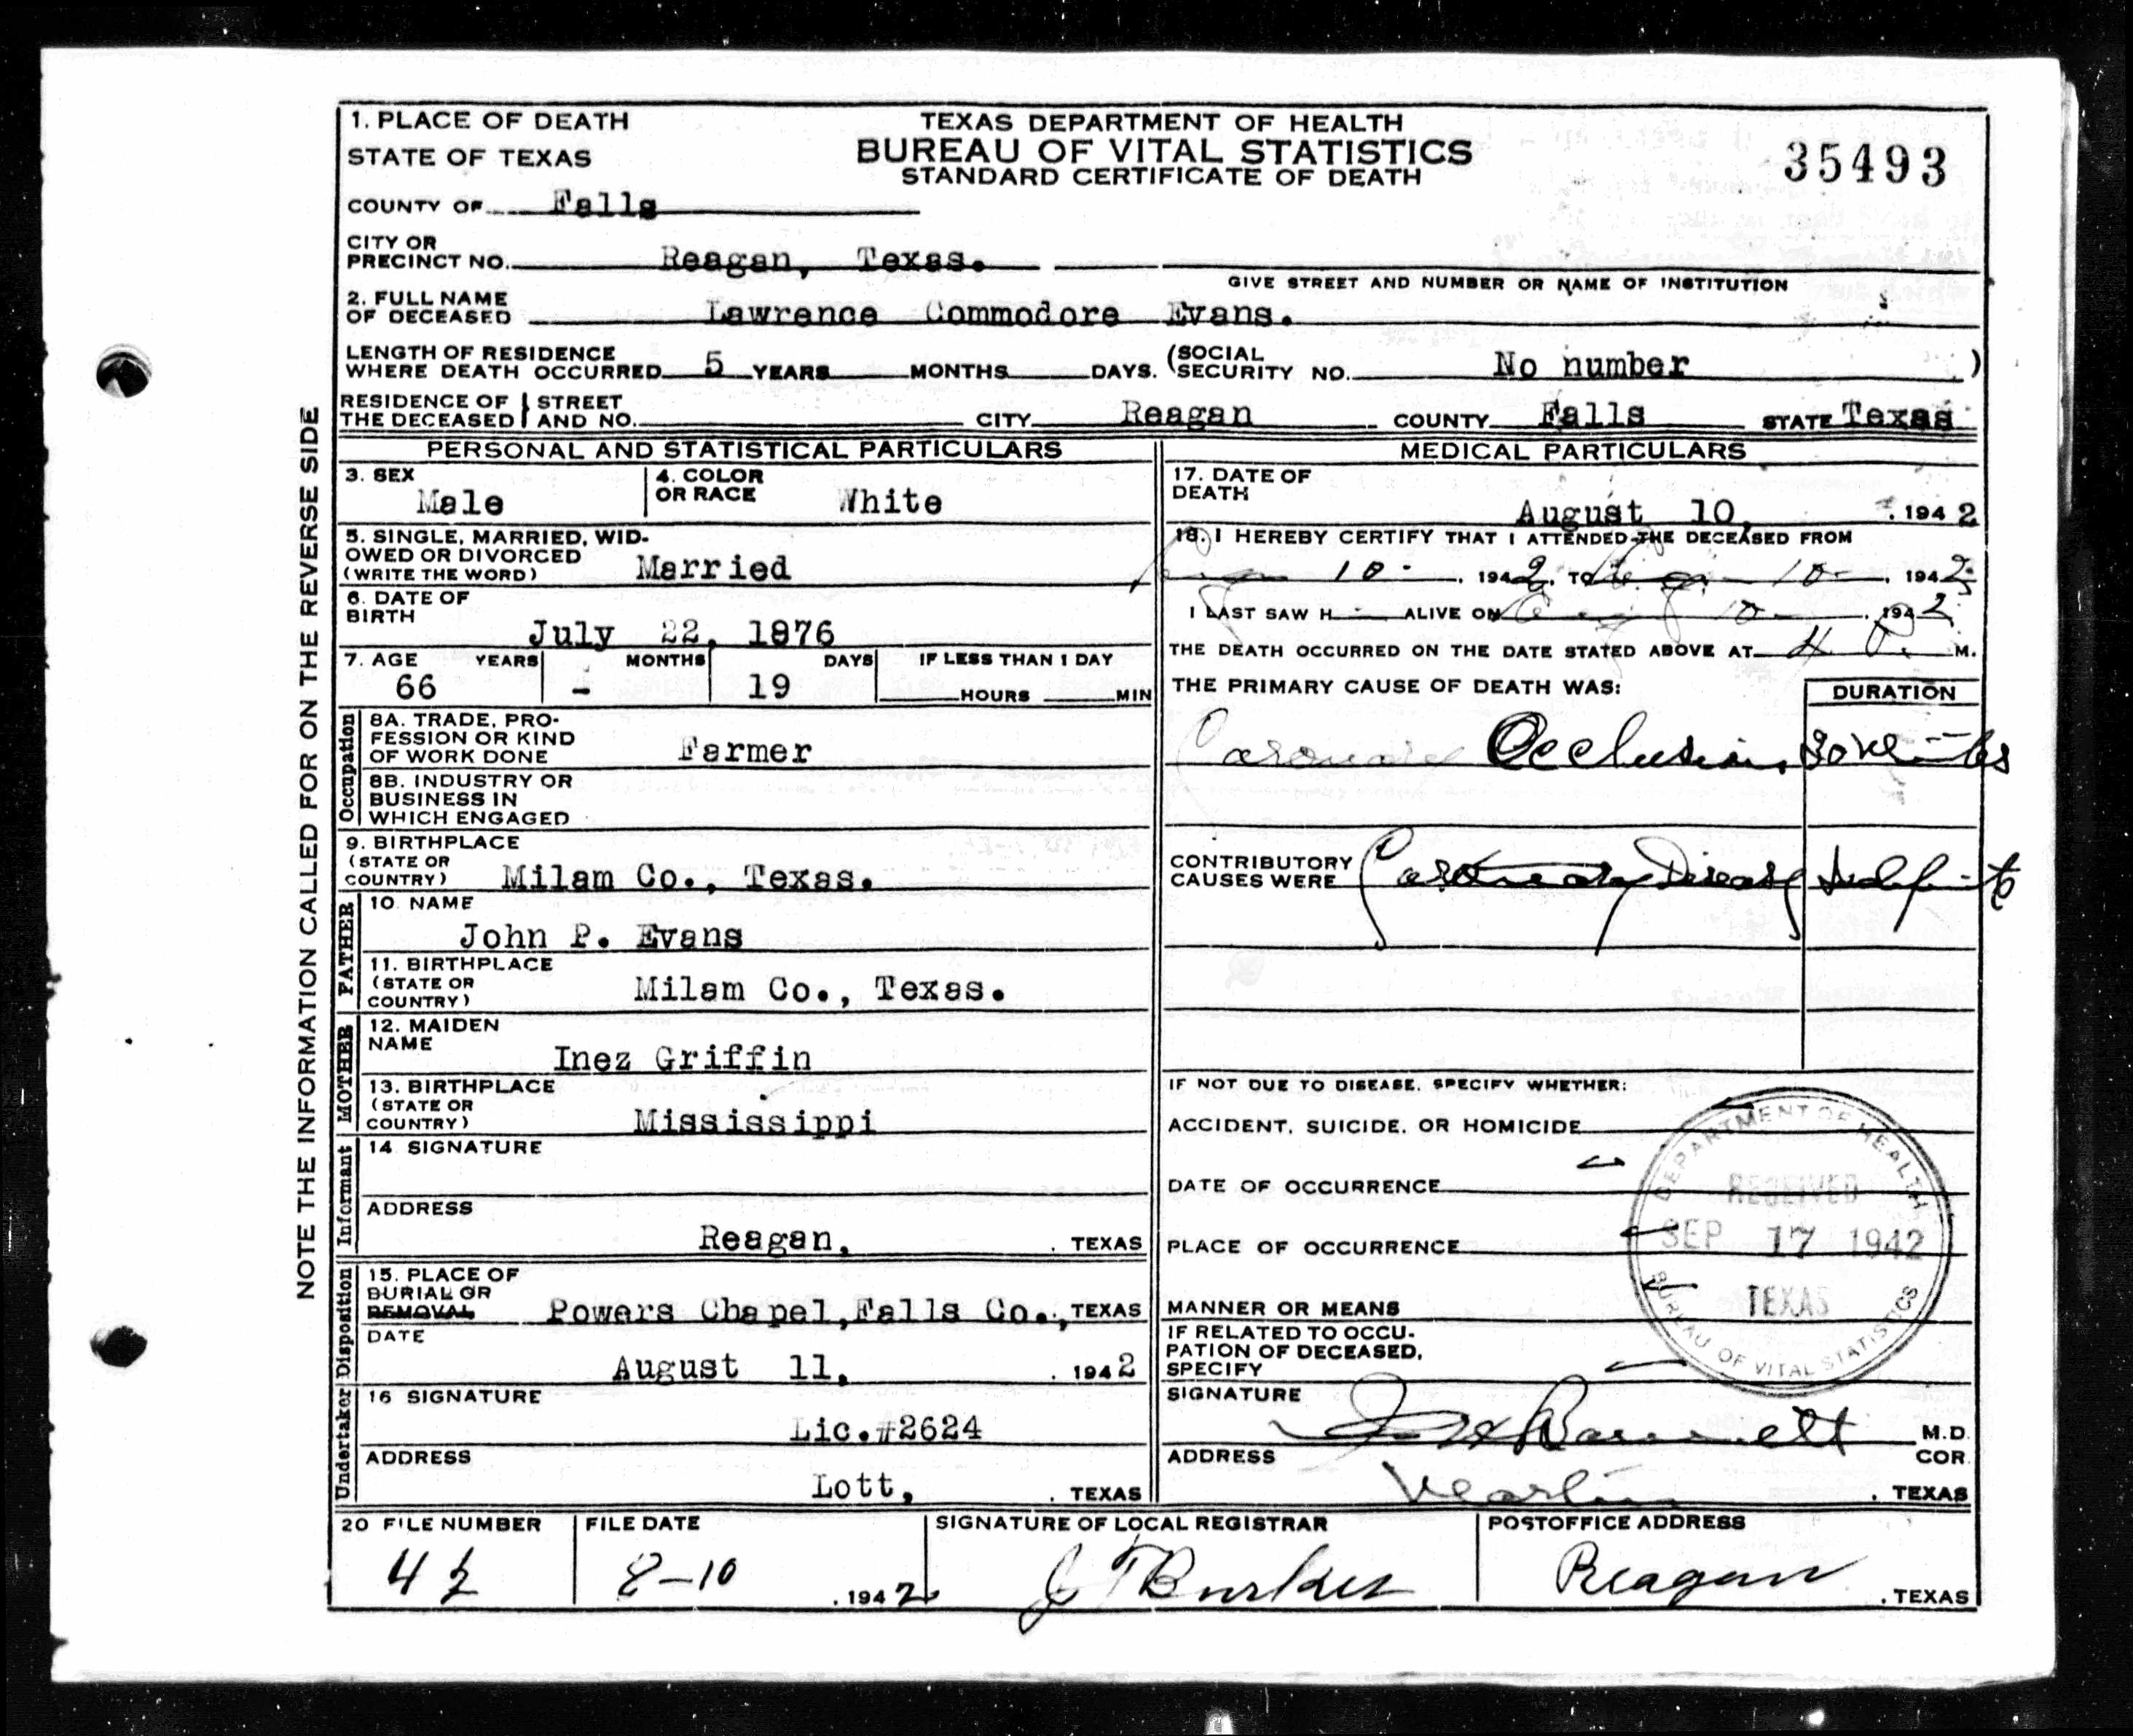 NOTE THE INFORMATION CALLED FOR ON THE REVERSE SIDE
1. PLACE OF DEATH
STATE OF TEXAS
TEXAS DEPARTMENT OF HEALTH
BUREAU OF VITAL STATISTICS
STANDARD CERTIFICATE OF DEATH
35493
COUNTY OF Falls
CITY OR
PRECINCT NO. Reagan, Texas.
GIVE STREET AND NUMBER OR NAME OF INSTITUTION
2. FULL NAME
OF DECEASED Lawrence Commodore Evans.
LENGTH OF RESIDENCE
WHERE DEATH OCCURRED 5 YEARS MONTHS DAYS. (SOCIAL SECURITY NO. No number )
RESIDENCE OF THE DECEASED } STREET AND NO. CITY Reagan COUNTY Falls STATE Texas
PERSONAL AND STATISTICAL PARTICULARS
3. SEX
Male
4. COLOR
OR RACE White
5. SINGLE, MARRIED, WID-
OWED OR DIVORCED
(WRITE THE WORD) Married
6. DATE OF
BIRTH
July 22, 1876
7. AGE YEARS MONTHS DAYS IF LESS THAN 1 DAY
66 - 19 HOURS MIN
Occupation
8A. TRADE, PRO-
FESSION OR KIND
OF WORK DONE Farmer
8B. INDUSTRY OR
BUSINESS IN
WHICH ENGAGED
9. BIRTHPLACE
(STATE OR
COUNTRY) Milam Co., Texas.
FATHER
10. NAME
John P. Evans
11. BIRTHPLACE
(STATE OR
COUNTRY) Milam Co., Texas.
MOTHER
12. MAIDEN
NAME
Inez Griffin
13. BIRTHPLACE
(STATE OR
COUNTRY) Mississippi
Informant
14 SIGNATURE
ADDRESS
Reagan, . TEXAS
Disposition
15. PLACE OF
BURIAL OR
REMOVAL Powers Chapel, Falls Co., TEXAS
DATE
August 11, . 1942
Undertaker
16 SIGNATURE
Lic.#2624
ADDRESS
Lott, . TEXAS
MEDICAL PARTICULARS
17. DATE OF
DEATH
August 10, . 1942
18. I HEREBY CERTIFY THAT I ATTENDED THE DECEASED FROM
Aug 10 - . 1942. TO Aug 10 - . 1942
I LAST SAW H ALIVE ON Aug 10 - . 1942
THE DEATH OCCURRED ON THE DATE STATED ABOVE AT 4 P. M.
THE PRIMARY CAUSE OF DEATH WAS: DURATION
Coronary Occlusion, 30 Minutes
CONTRIBUTORY
CAUSES WERE Coronary Disease Indefinite
IF NOT DUE TO DISEASE, SPECIFY WHETHER:
ACCIDENT, SUICIDE, OR HOMICIDE
DATE OF OCCURRENCE
PLACE OF OCCURRENCE
MANNER OR MEANS
IF RELATED TO OCCU-
PATION OF DECEASED,
SPECIFY
DEPARTMENT OF HEALTH
RECEIVED
SEP 17 1942
TEXAS
BUREAU OF VITAL STATISTICS
SIGNATURE
Barnett M.D.
COR.
ADDRESS
Marlin . TEXAS
20 FILE NUMBER FILE DATE SIGNATURE OF LOCAL REGISTRAR POSTOFFICE ADDRESS
8-10 . 1942 J T Burks Reagan . TEXAS